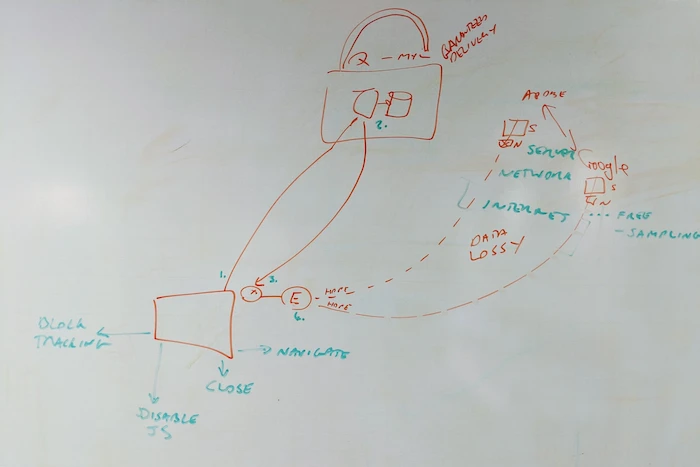 GARANTEED
DELIVERY
2.
ADOBE
S
N
SERVER
Google
NETWORK
S
N
INTERNET
... FREE
- SAMPLING
DATA
LOSSY
1.
3.
E
HOPE
HOPE
4.
BLOCK
TRACKING
NAVIGATE
CLOSE
DISABLE
JS